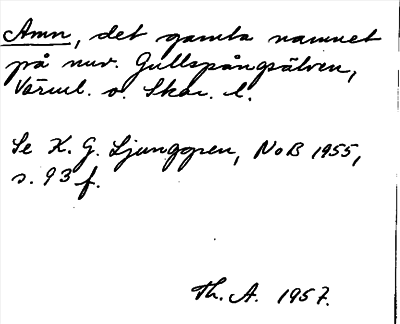 Amn, det gamla namnet
på nuv. Gullspångsälven,
Värml. o. Skar. l.
Se K. G. Ljunggren, NoB 1955,
s. 93 f.
Th. A. 1957.